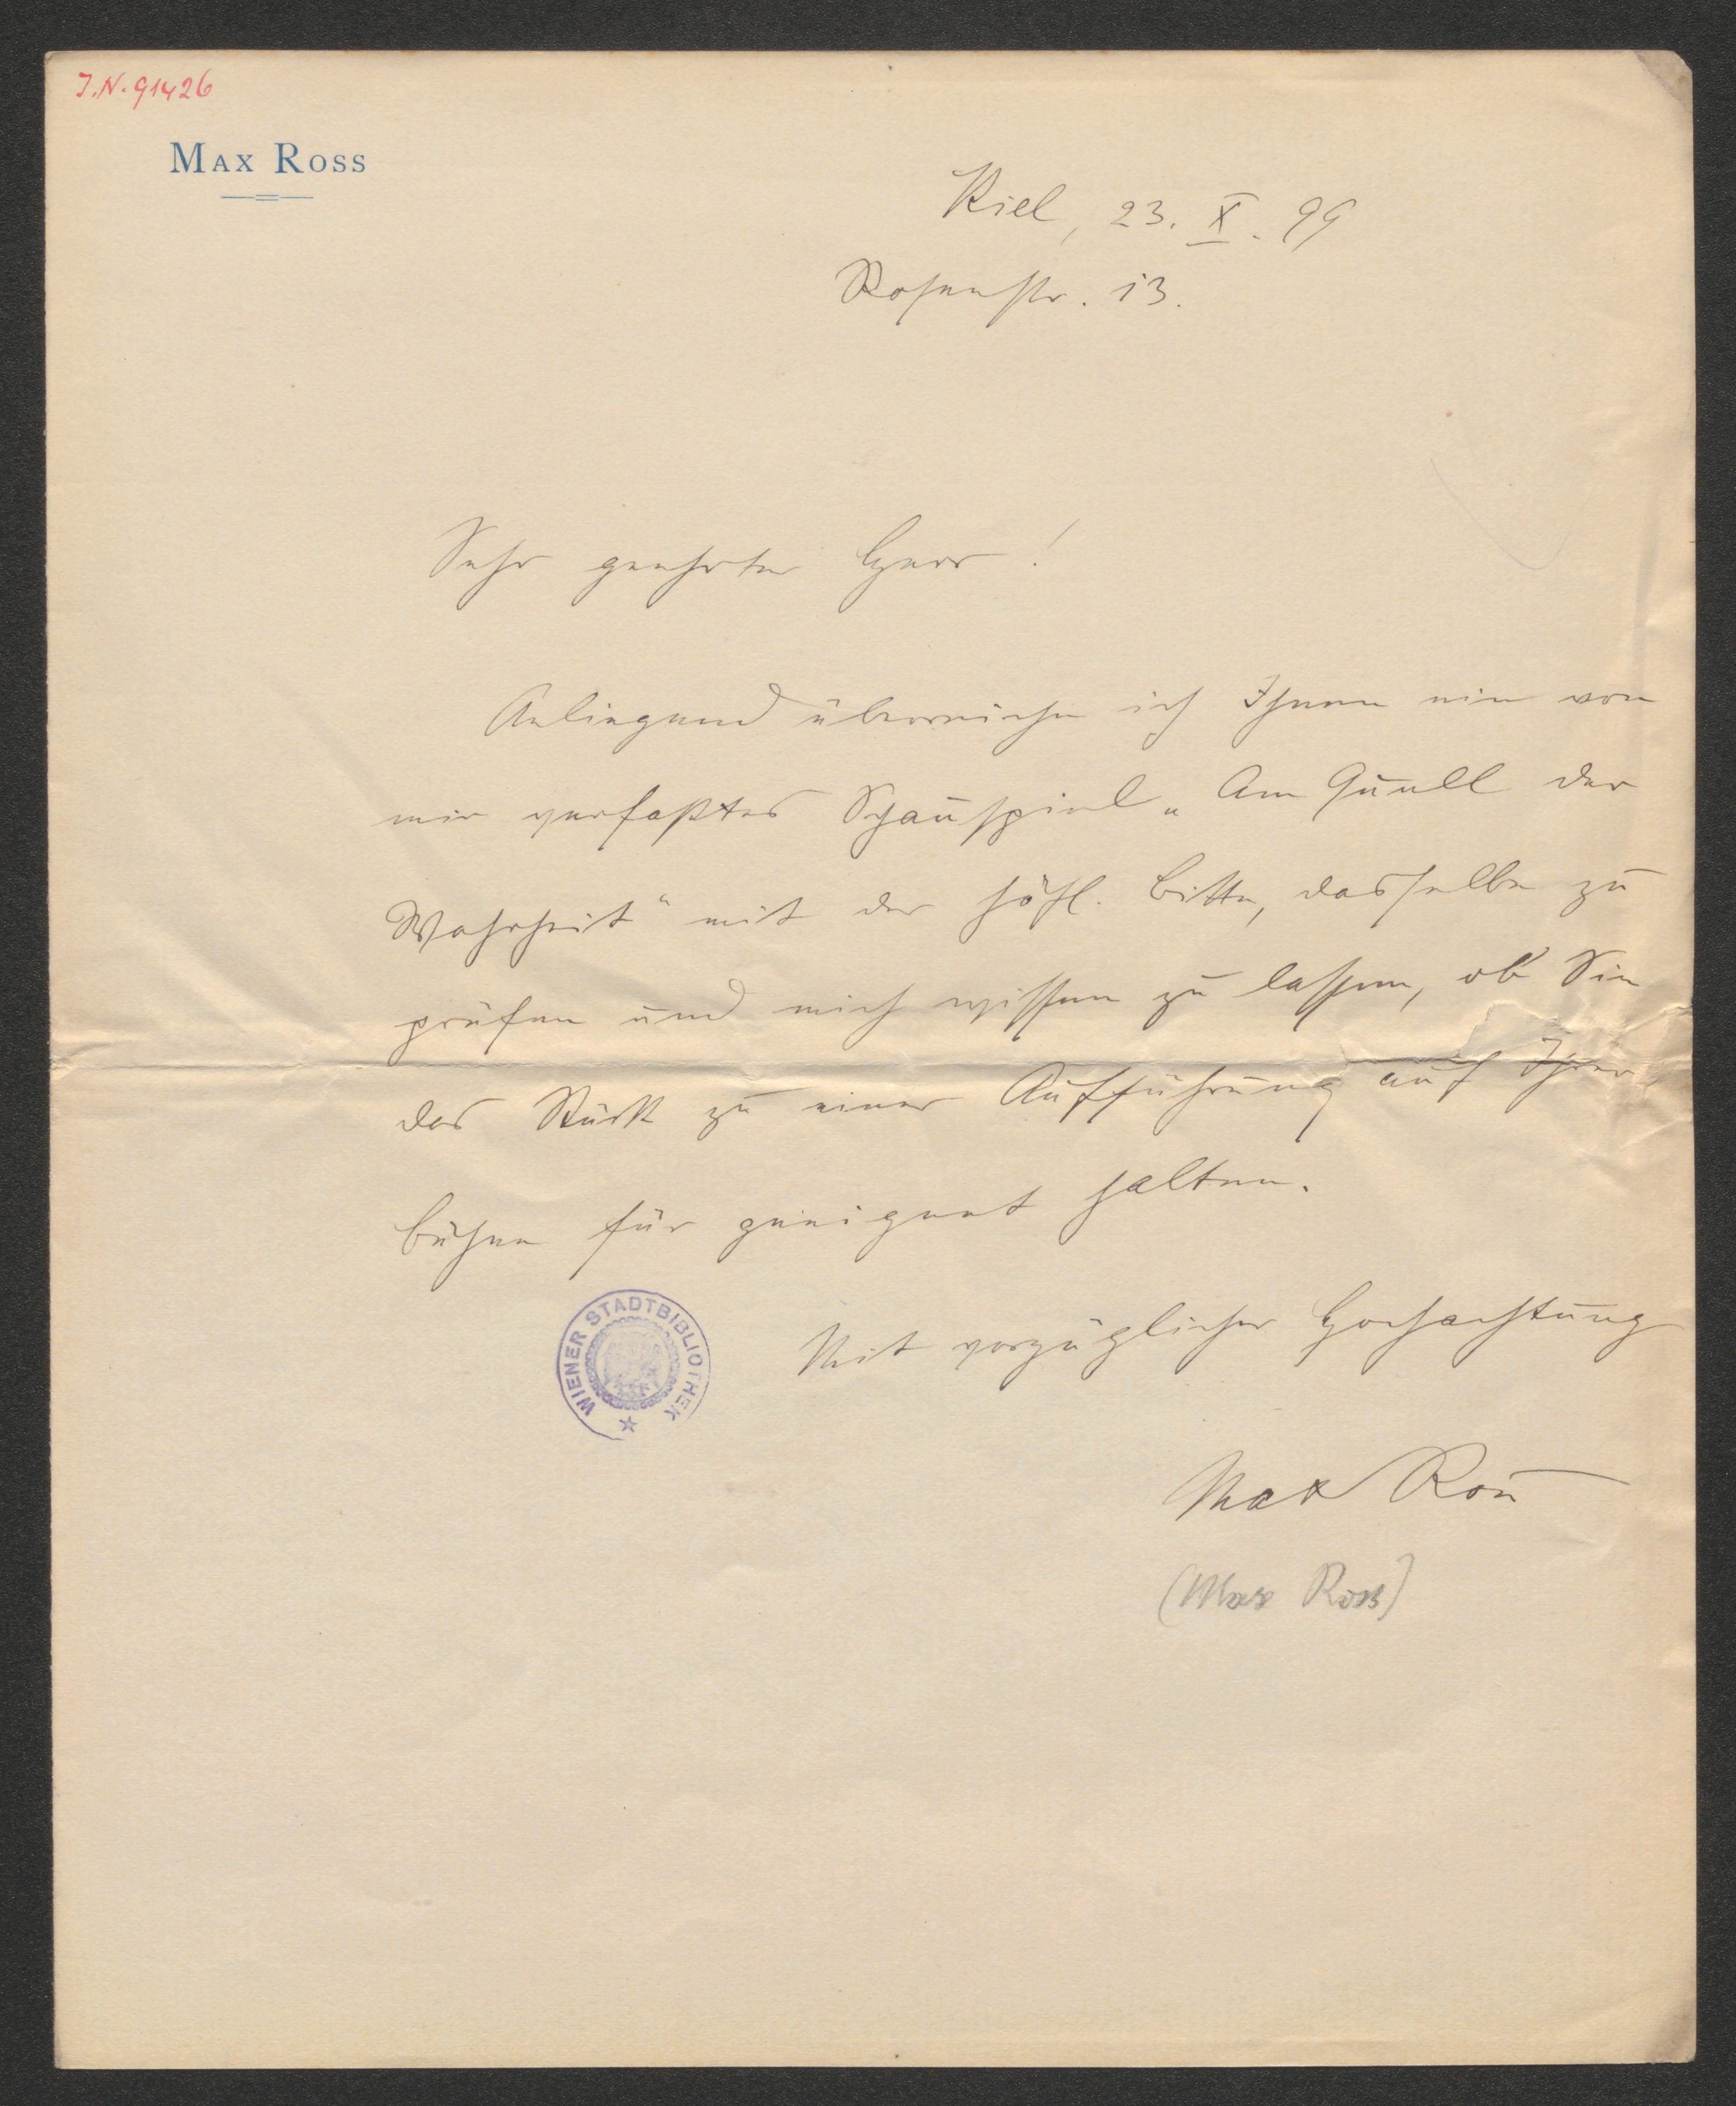 J.N. 91426
MAX ROSS
Kiel, 23. X. 99
Rosenstr. 13.
Sehr geehrter Herr!
Anliegend überreiche ich Ihnen ein von
mir verfaßtes Schauspiel „Am Quell der
Wahrheit“ mit der höfl. Bitte, dasselbe zu
prüfen und mich wissen zu lassen, ob Sie
das Stück zu einer Aufführung auf Ihrer
Bühne für geeignet halten.
WIENER STADTBIBLIOTHEK
Mit vorzüglicher Hochachtung
Max Ross
(Max Ross)